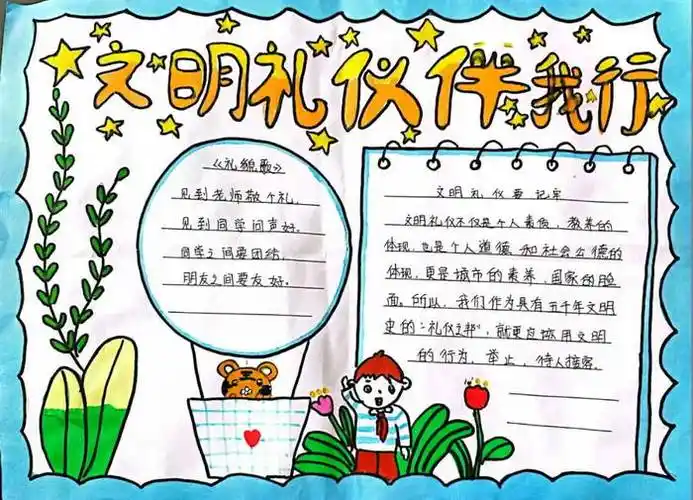 文明礼仪伴我行
《礼貌歌》
见到老师敬个礼，
见到同学问声好。
同学之间要团结，
朋友之间要友好。
文明礼仪要记牢
文明礼仪不仅是个人素质、教养的
体现，也是个人道德和社会公德的
体现，更是城市的素养、国家的脸
面。所以，我们作为具有五千年文明
史的“礼仪之邦”，就更应该用文明
的行为、举止，待人接物。